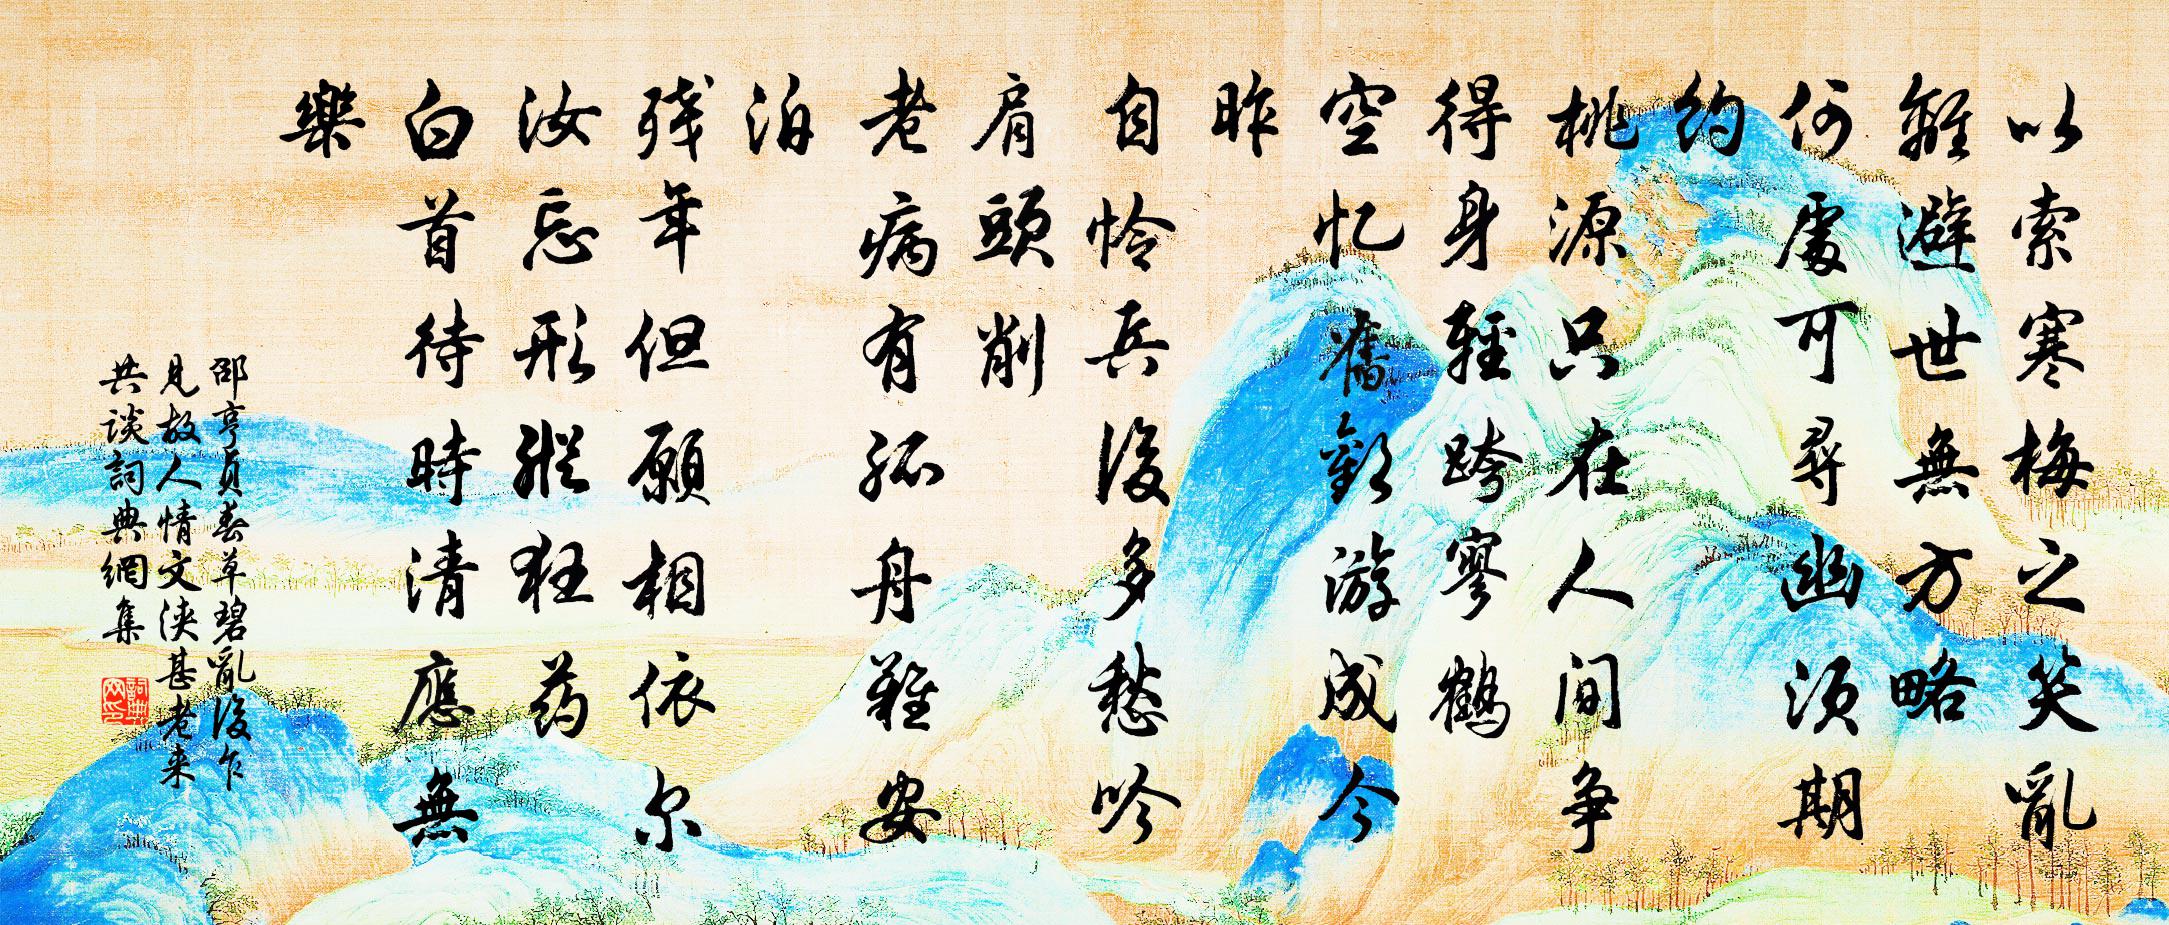 以索寒梅之笑亂
離避世無方略
何處可尋幽須期
約
桃源只在人间争
得身輕跨寥鶴
空忆舊歡游成今
昨
自怜兵後多愁吟
肩頭削
老病有孤舟難安
泊
残年但願相依尔
汝忘形縱狂药
白首待時清應無
樂
邵亨貞春草碧亂後乍
見故人情文浹甚老来
共谈詞典網集